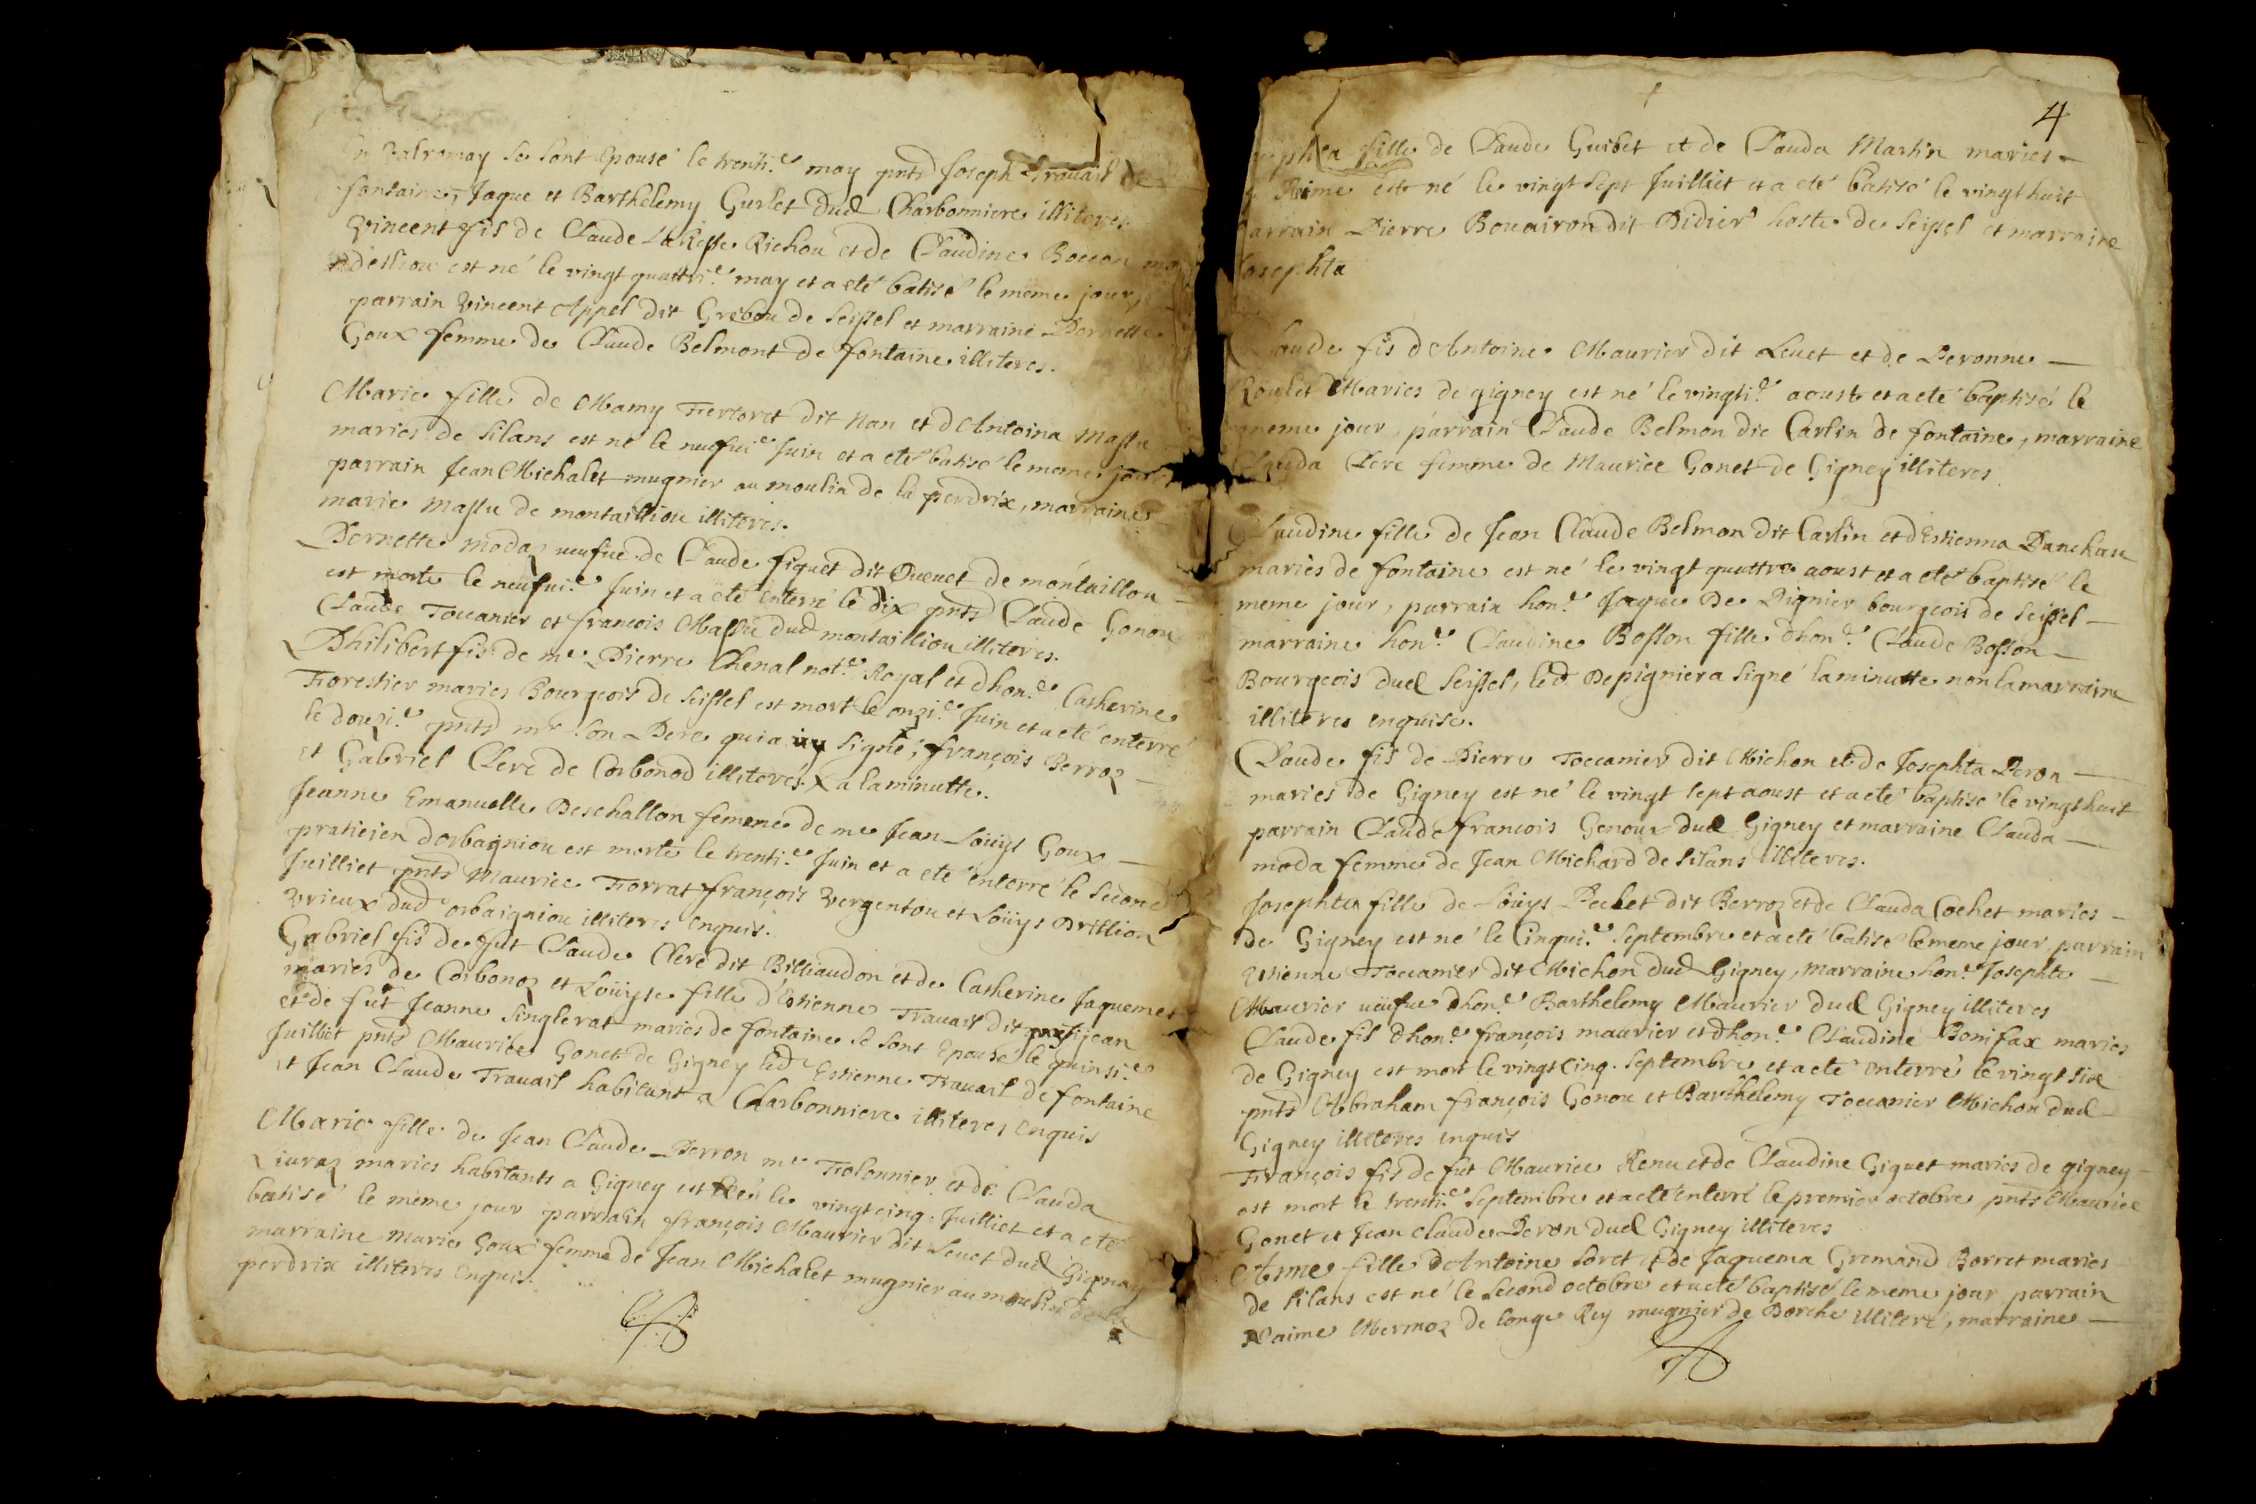 en Valromay se sont Epousé le trenti.e may pnts Joseph Trauail de
fontaine, Jaque et Barthelemy Gurlet dud Charbonniere illiteres
Vincent fils de Claude La Reste Richou et de Claudine Bocon
est né le vingt quattri.e may et a eté batisé le meme jour,
parrain Vincent Appel dit Grebou de Seissel et marraine Pernette
Goux femme de Claude Belmont de fontaine illiteres.
Marie fille de Mamy Fiertoret dit Nan et d'Antoina Massu
maries de Silans est né le neufui.e Juin et a eté batisé le meme jour
parrain Jean Michalet mugnier au moulin de la perdrix, marraine
marie Massu de montailliou illiteres.
Pernette Modaz ueufue de Claude figuet dit Queuet de montaillou
est morte le neufui.e Juin et a eté enterré le dix pnts Claude Gonou
Claude Toccanier et francois Massu dud montailliou illiteres.
Philibert fis de me Pierre Chenal not.e Royal et dhon.e Catherine
Forestier maries Bourgeois de Seissel est mort le onzi.e Juin et a eté enterré
le douzi.e pnts mr son Pere qui a signé, françois Berroz
et Gabriel Clerc de Corbonod illiterés. X a la minutte.
Jeanne Emanuelle Deschallon femme de me Jean Loüys Goux
praticien dorbagniou est morte le trenti.e Juin et a eté enterré le second
Juilliet pnts Maurice Forrat françois Vergentou et Loüys Drillion
Vrieux dud orbaigniou illiteres enquis.
Gabriel fis de fut Claude Clerc dit Billiaudon et de Catherine Jaquemet
maries de Corbonoz et Loüyse fille d'Estienne Trauail dit jean
et de fut Jeanne Singlerat maries de fontaine se sont Epousé le quinsi.e
Juilliet pnts Maurice Gonet de Gigney led Estienne Trauail de fontaine
et Jean Claude Trauail habitant a Charbonniere illiteres enquis
Marie fille de Jean Claude Perron me Tiolonnier et de Clauda
Liuraz maries habitants a Gigney est née le vingt cinq Juilliet et a eté
batisé le meme jour parrain françois Maurier dit Leuet dud Gignay
marraine Marie Goux femme de Jean Michalet mugnier au moulin de la
perdrix illiteres enquis.
4
fille de Claude Guibet et de Clauda Martin maries
est né le vingt sept Juilliet et a eté batisé le vingt huit
parrain Pierre Bouairon dit Didier hoste de Seissel et marraine
Josephta
Claude fis d'Antoine Maurier dit Leuet et de Peronne
Roulet Maries de gigney est né le vingti.e aoust et a eté baptisé le
meme jour, parrain Claude Belmon dit Carlin de fontaine, marraine
Clauda Clerc femme de Maurice Gonet de Gigney illiteres
Claudine fille de Jean Claude Belmon dit Carlin et d'Estienna Danchau
mariés de fontaine est né le vingt quattre aoust et a eté baptisé le
meme jour, parrain hon.e Jaque De Pignier bourgeois de Seissel
marraine hon.e Claudine Bosson fille dhon.e Claude Bosson
Bourgeois dud Seissel, led Depignier a signé la minutte non la marraine
illiteres enquise.
Claude fis de Pierre Toccanier dit Michon et de Josephta Peron
mariés de Gigney est né le vingt sept aoust et a eté baptisé le vingt huit
parrain Claude francois Genoux dud Gigney et marraine Clauda
moda femme de Jean Michard de Silans illiteres.
Josephta fille de Loüys Pechet dit Berroz et de Clauda Cochet maries
de Gigney est né le Cinqui.e Septembre et a eté batisé le meme jour parrain
Etienne Toccanier dit Michon dud Gigney, marraine hon.e Josephte
Maurier ueüfue dhon.e Barthelemy Maurier dud Gigney illiteres
Claude fils dhon.e françois maurier et dhon.e Claudine Bonifax maries
de Gigney est mort le vingt Cinq Septembre et a eté enterré le vingt six
pnts Abraham françois Gonou et Barthelemy Toccanier Michon dud
Gigney illiteres enquis
François fis de fut Maurice Renu et de Claudine Giguet maries de gigney
est mort le trenti.e Septembre et a eté enterré le premier octobre pnts Maurice
Gonet et Jean claude Peron dud Gigney illiteres
Anne fille d'Antoine Soret et de Jaquema Gremand Borret maries
de Silans est né le Second octobre et a eté baptisé le meme jour parrain
aime Mermoz de longe Rey mugnier de Borche illiteré, marraine